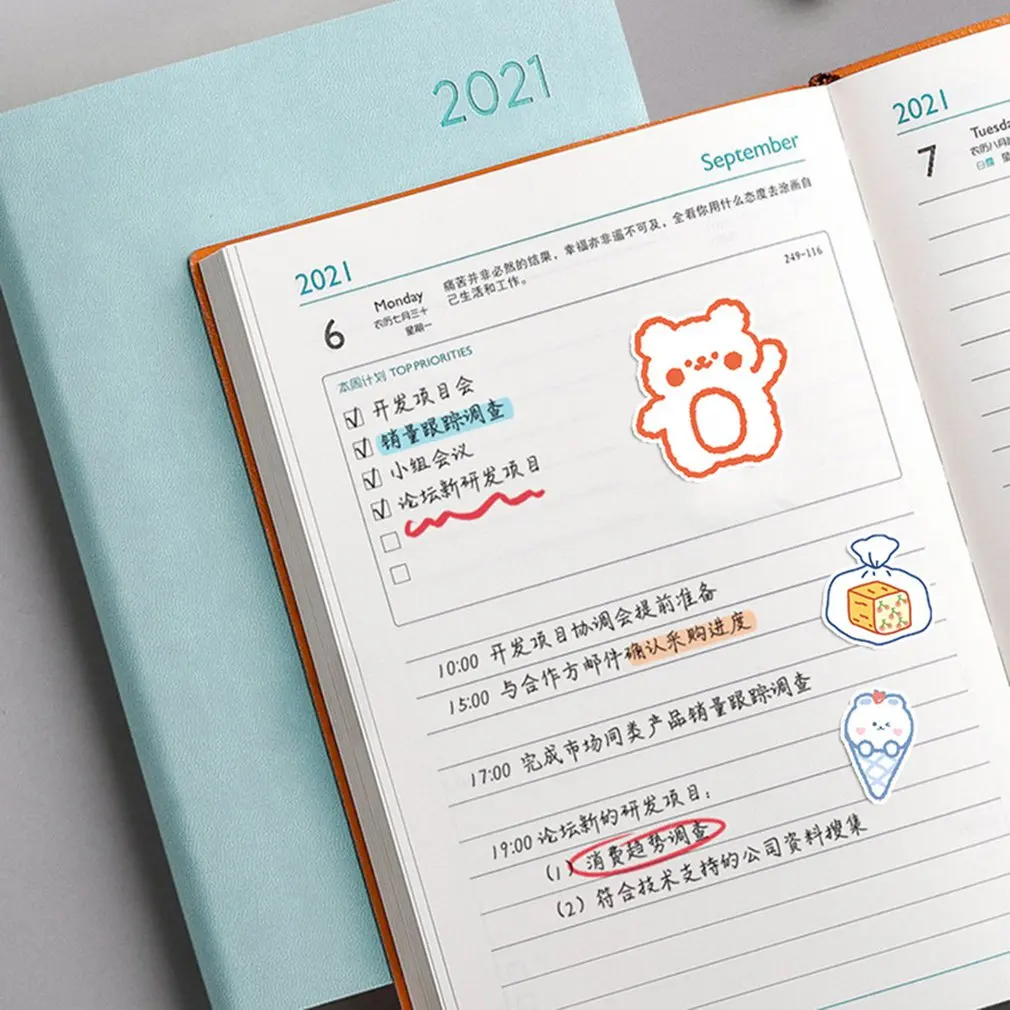 2021
September
2021
痛苦并非必然的结果，幸福亦非遥不可及，全看你用什么态度去涂画自
己生活和工作。
6
Monday
农历七月三十
星期一
249-116
本周计划 TOP PRIORITIES
开发项目会
销量跟踪调查
小组会议
论坛新研发项目
10:00 开发项目协调会提前准备
15:00 与合作方邮件确认采购进度
17:00 完成市场同类产品销量跟踪调查
19:00 论坛新的研发项目：
(1) 消费趋势调查
(2) 符合技术支持的公司资料搜集
2021
7
农历八月
白露